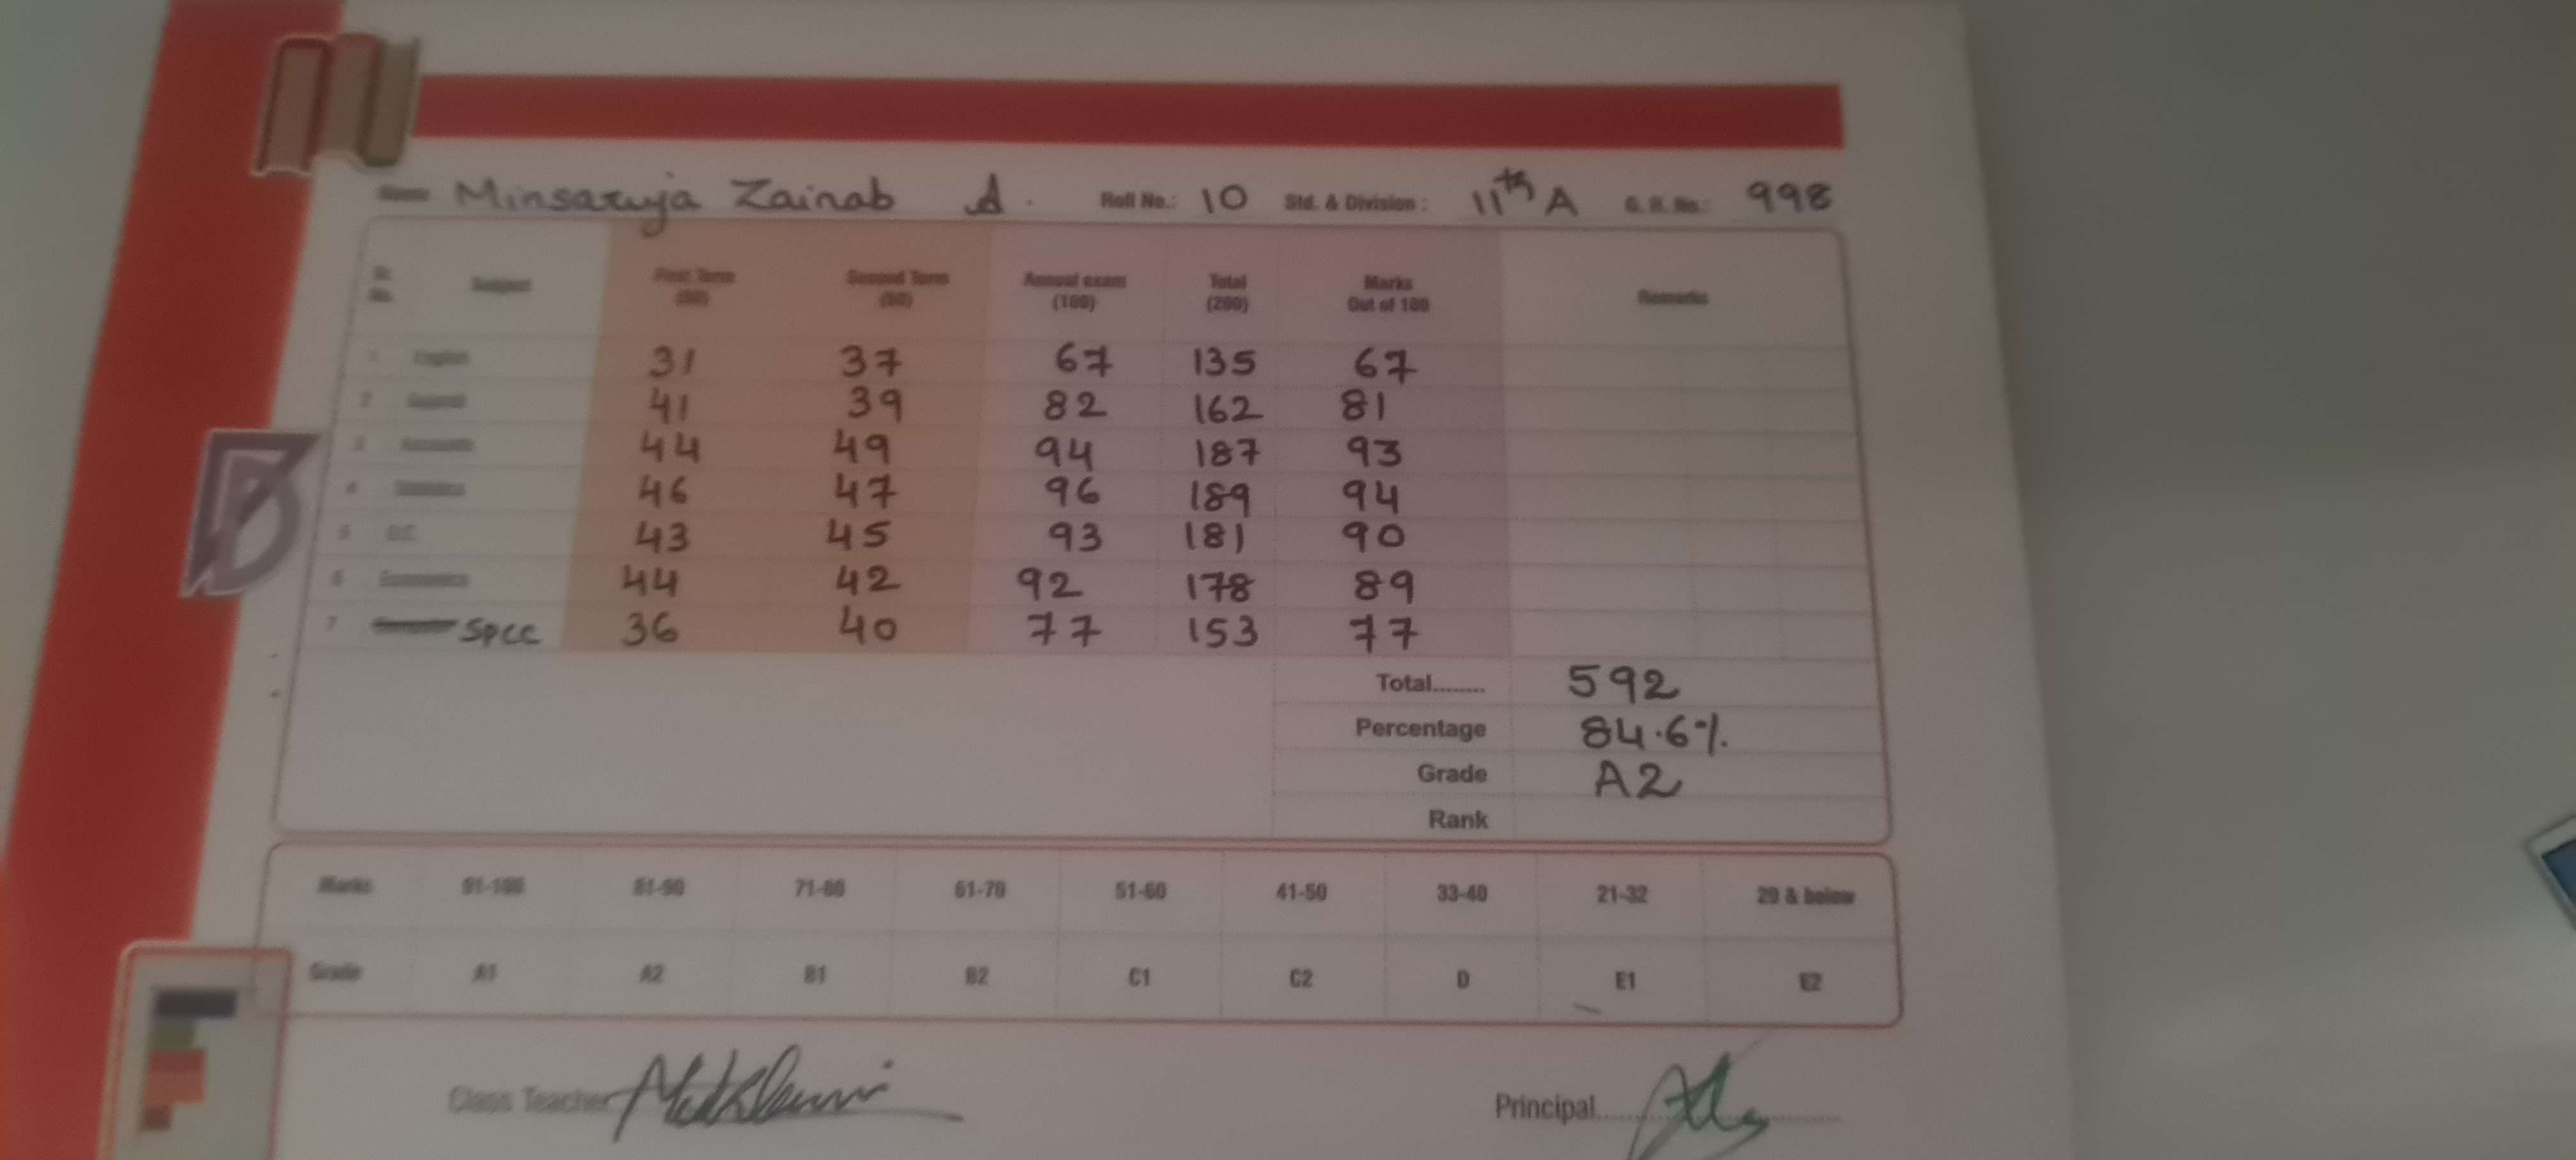 Name Minsariya Zainab A. Roll No.: 10 Std. & Division : 11th A G. R. No.: 998
Sr. No. Subject First Term (50) Second Term (50) Annual exam (100) Total (200) Marks Out of 100 Remarks
1 English 31 37 67 135 67
2 Gujarati 41 39 82 162 81
3 Accounts 44 49 94 187 93
4 Statistics 46 47 96 189 94
5 O.C. 43 45 93 181 90
6 Economics 44 42 92 178 89
7 Spcc 36 40 77 153 77
Total........ 592
Percentage 84.6%
Grade A2
Rank
Marks 91-100 81-90 71-80 61-70 51-60 41-50 33-40 21-32 20 & below
Grade A1 A2 B1 B2 C1 C2 D E1 E2
Class Teacher
Principal